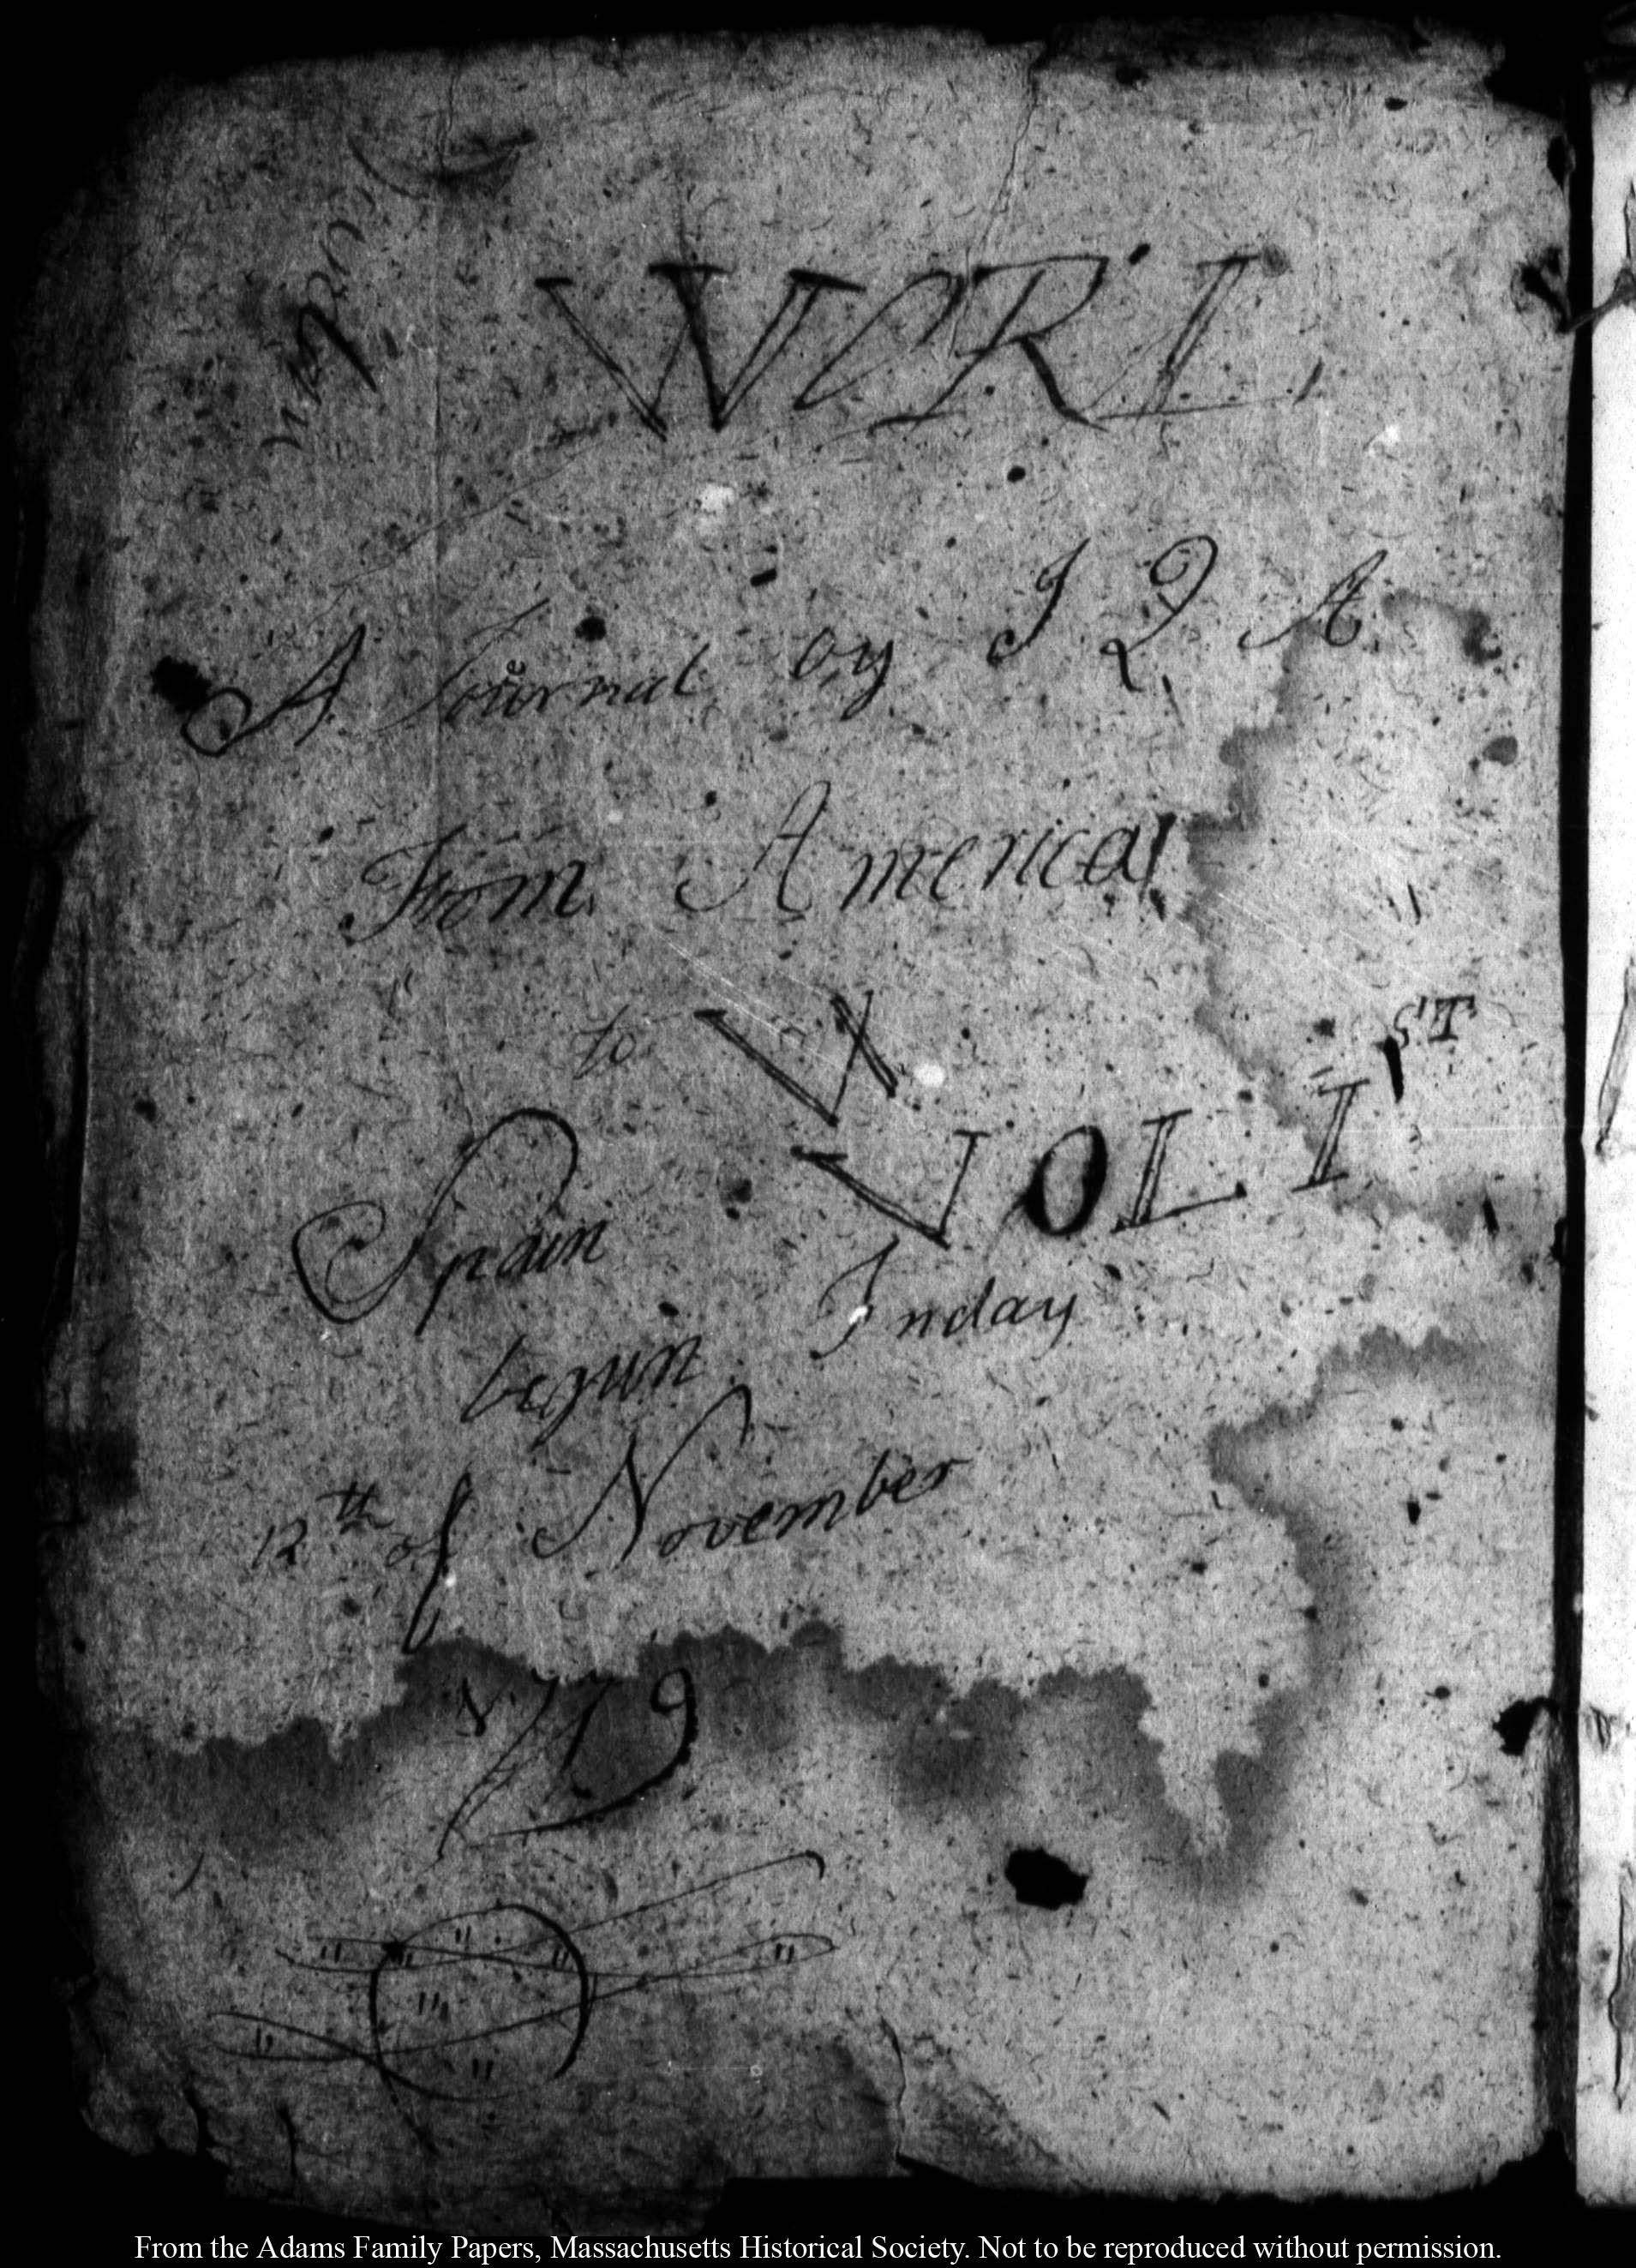 A Journal by J Q A
From America
to V
Spain VOL I ST
begun Friday
12th of November
1779
From the Adams Family Papers, Massachusetts Historical Society. Not to be reproduced without permission.